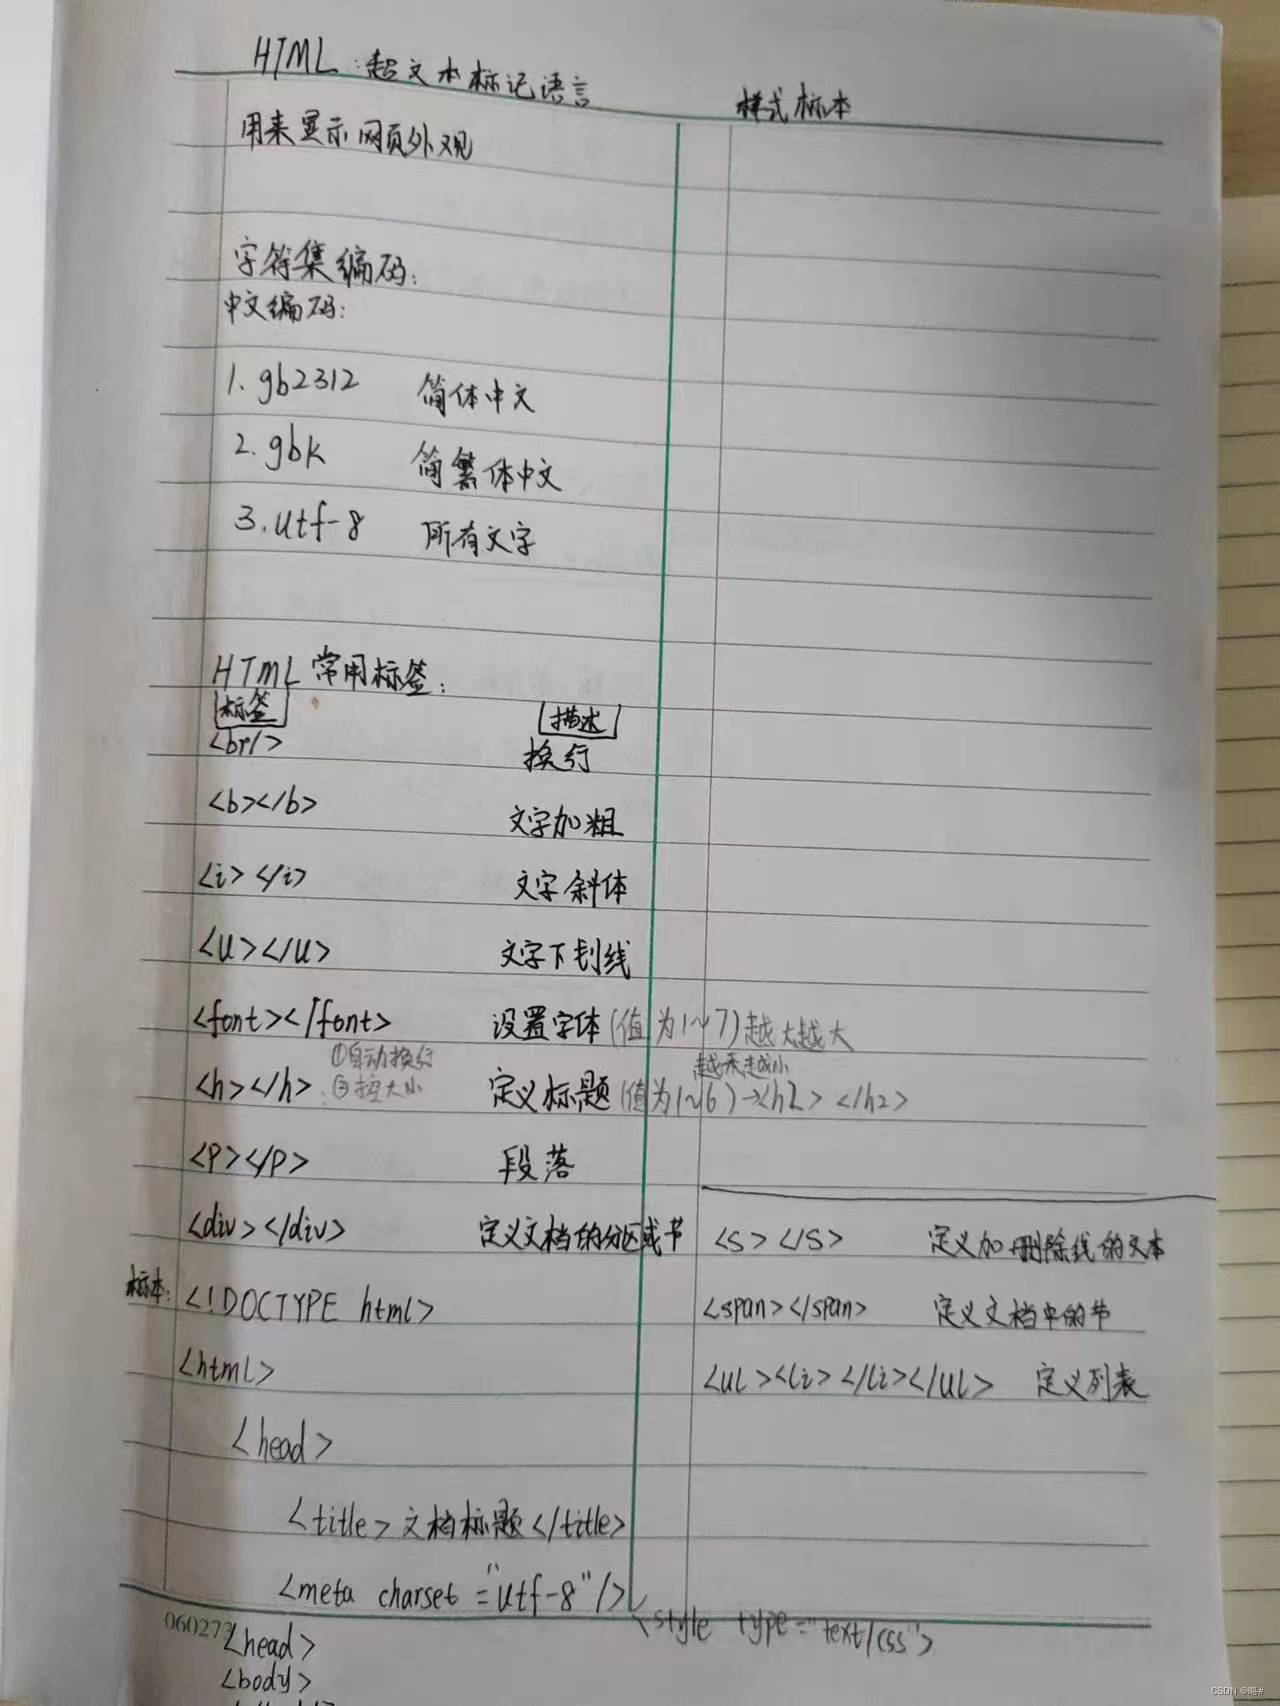 HTML:超文本标记语言
样式标本
用来显示网页外观
字符集编码:
中文编码:
1.gb2312 简体中文
2.gbk 简繁体中文
3.utf-8 所有文字
HTML常用标签:
标签 描述
<br/> 换行
<b></b> 文字加粗
<i></i> 文字斜体
<u></u> 文字下划线
<font></font> 设置字体(值为1~7)越大越大
①自动换行
②控大小
越来越小
<h></h> 定义标题(值为1~6)→<h2></h2>
<p></p> 段落
<div></div> 定义文档的分区或节
<s></s> 定义加删除线的文本
<span></span> 定义文档中的节
<ul><li></li></ul> 定义列表
标本:<!DOCTYPE html>
<html>
<head>
<title>文档标题</title>
<meta charset="utf-8"/>
<style type="text/css">
060273
<head>
<body>
CSDN @略#